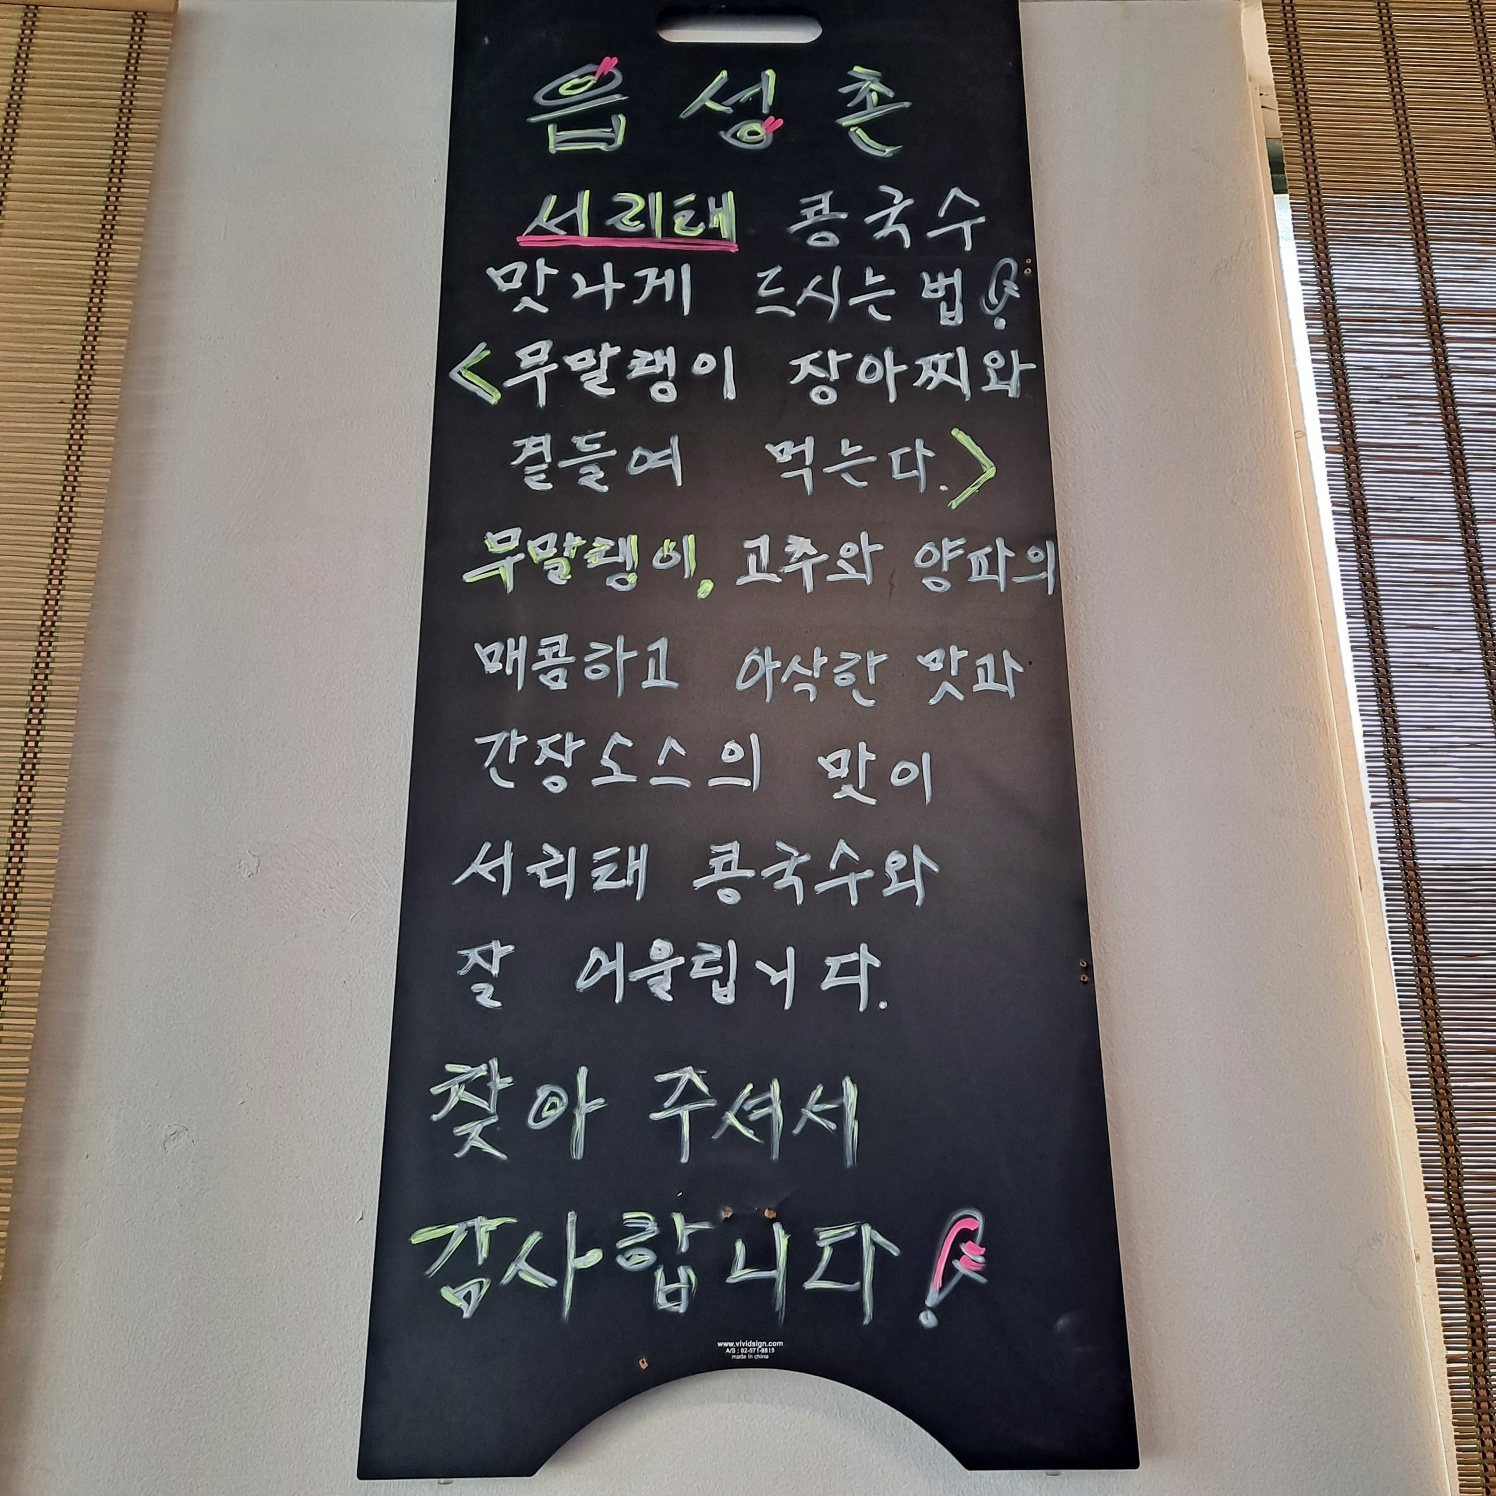 음성촌
서리태 콩국수
맛나게 드시는 법!
<무말랭이 장아찌와
곁들여 먹는다.>
무말랭이, 고추와 양파의
매콤하고 아삭한 맛과
간장소스의 맛이
서리태 콩국수와
잘 어울립니다.
찾아 주셔서
감사합니다!
www.vividsign.com
A/S : 02-571-8815
made in china